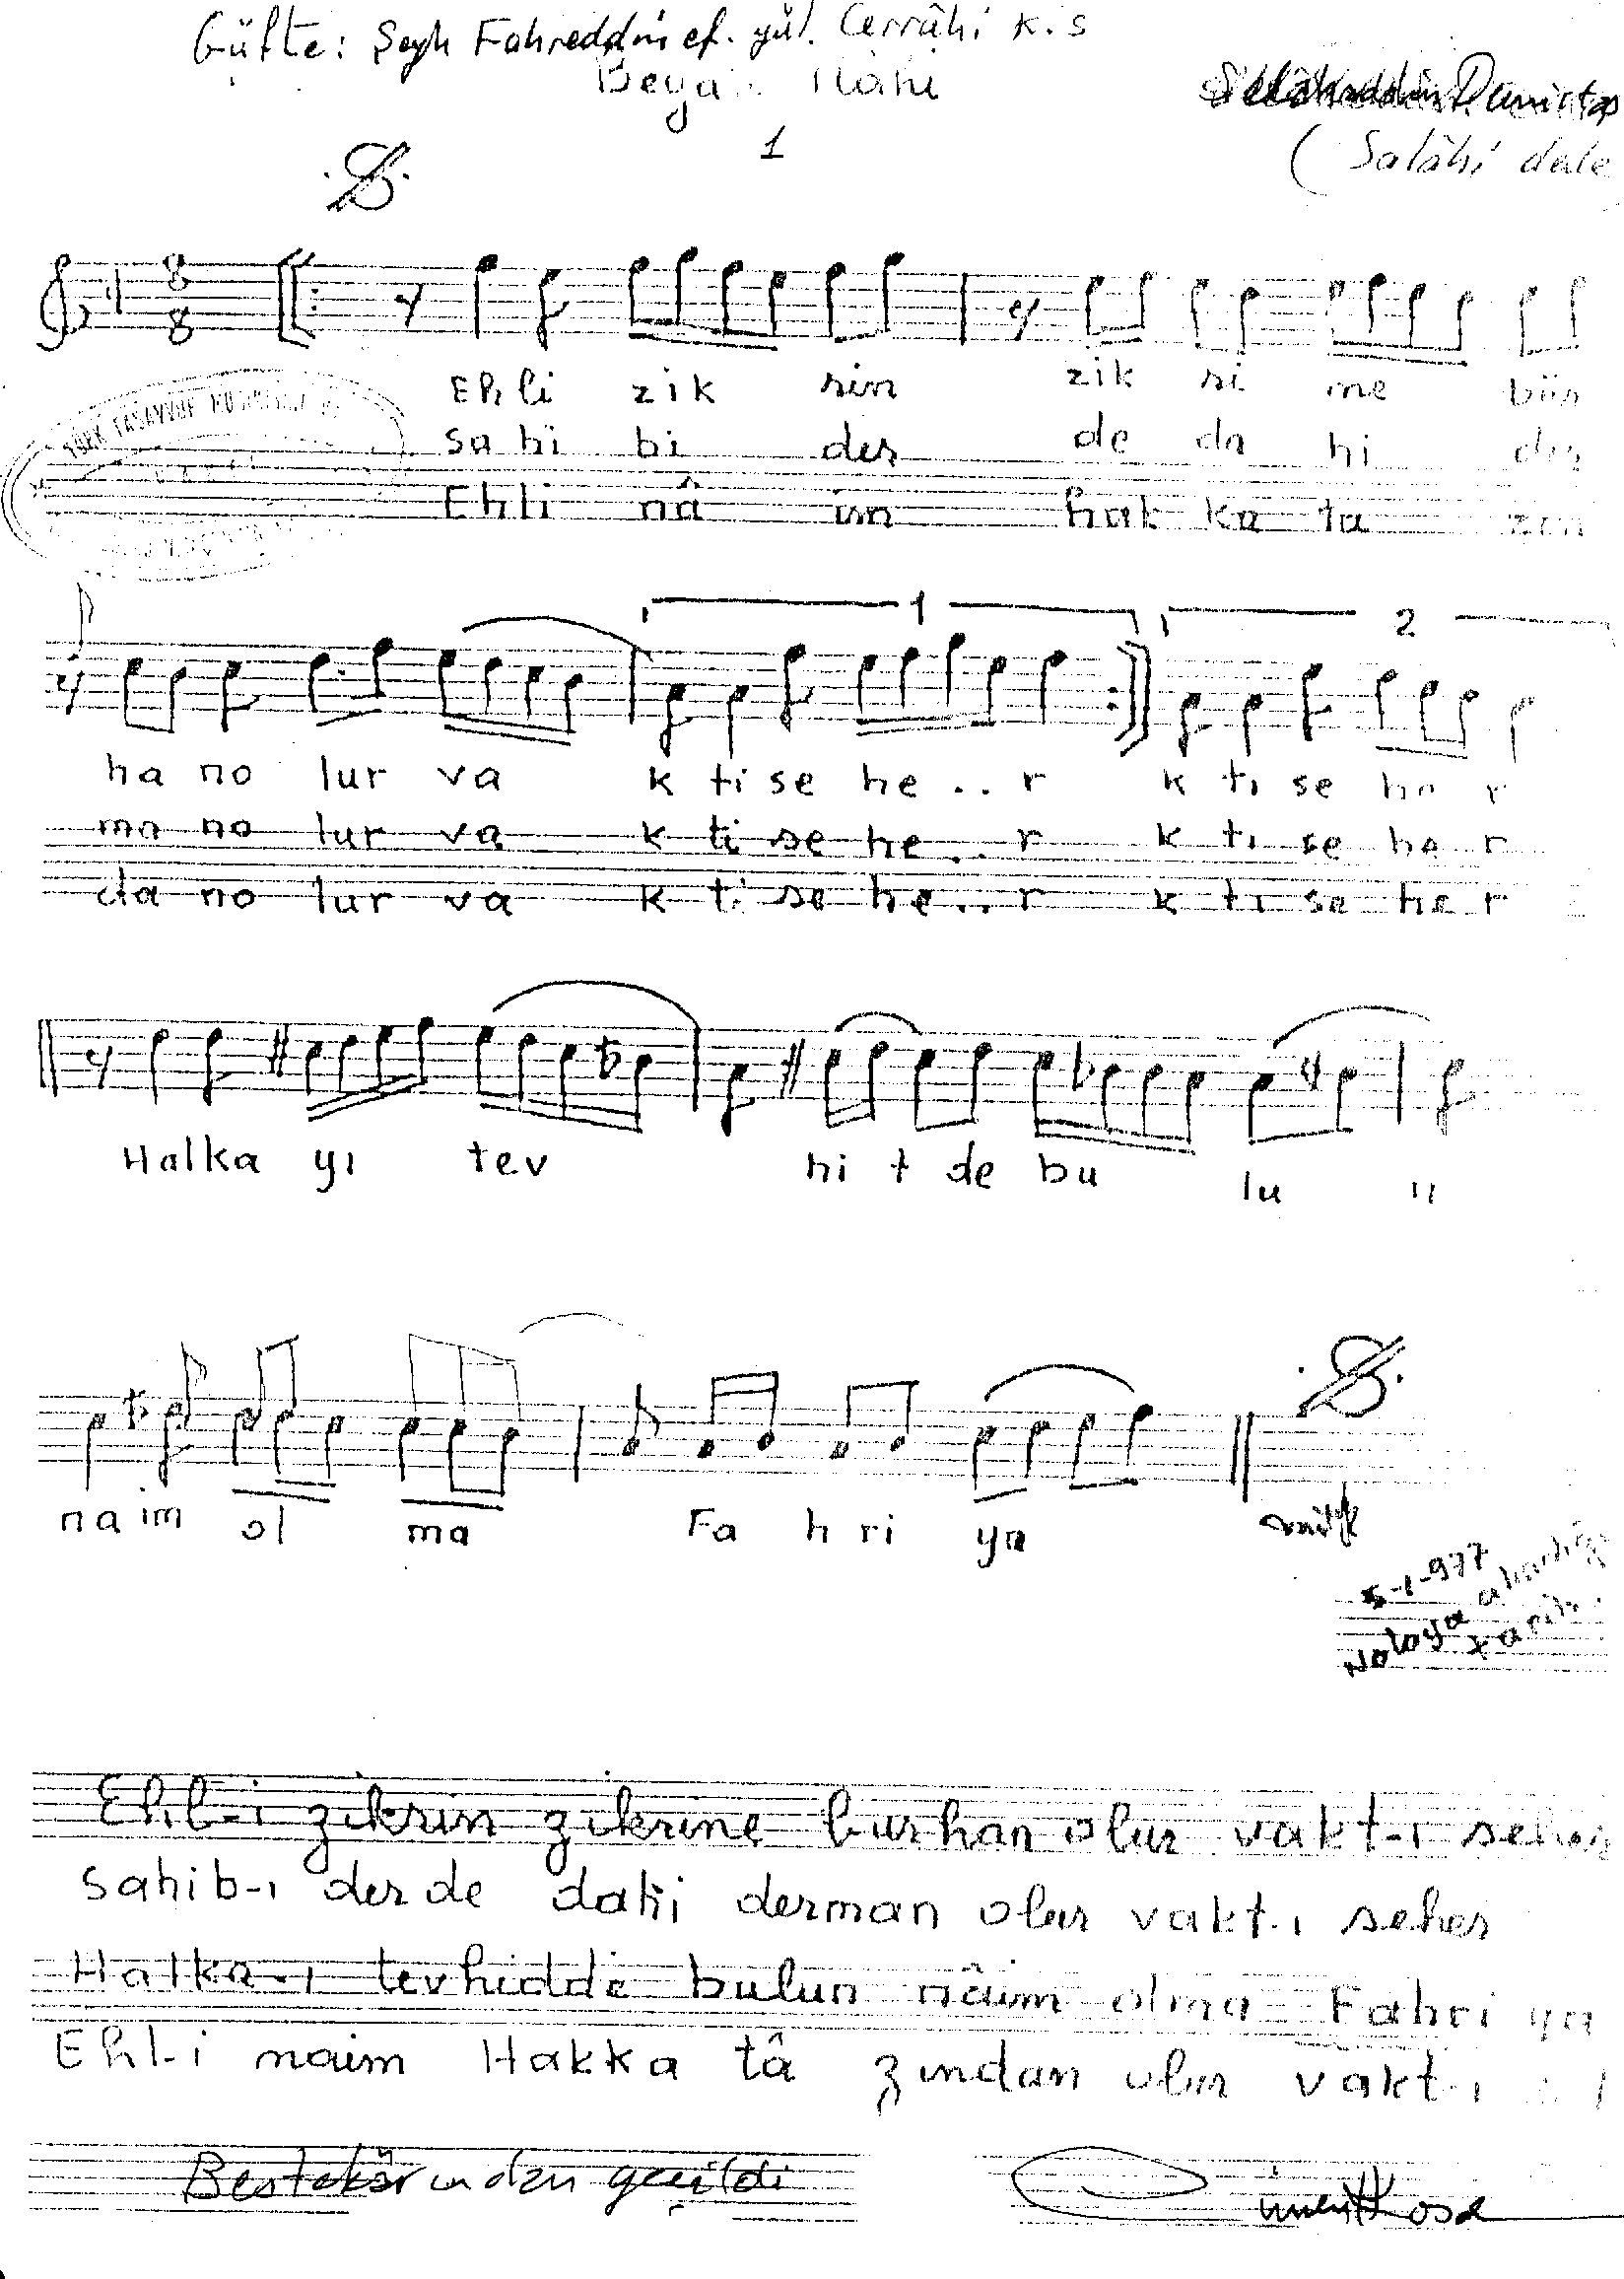 Güfte: Şeyh Fahreddin ef. Cerrâhi K.S
İlâhi
1
(Salâhi dede
8
8
TÜRK TASAVVUF
Ehli zik rin zik ri ne bür
sa hi bi der de da hi der
Ehli nâ im hak ka ta zin
1 2
ha no lur va k ti se he .. r k ti se he r
ma no lur va k ti se he .. r k ti se he r
da no lur va k ti se he .. r k ti se he r
Halka yı tev hi t de bu lu n
na im ol ma Fa h ri ya
5-1-977
Notaya
Ehl-i zikrin zikrine burhan olur vakt-ı seher
Sahib-ı derde dahi derman olur vakt-ı seher
Halka-ı tevhidde bulun nâim olma Fahri ya
Ehl-i naim Hakka tâ zından olur vakt-ı
Bestekârından geçildi